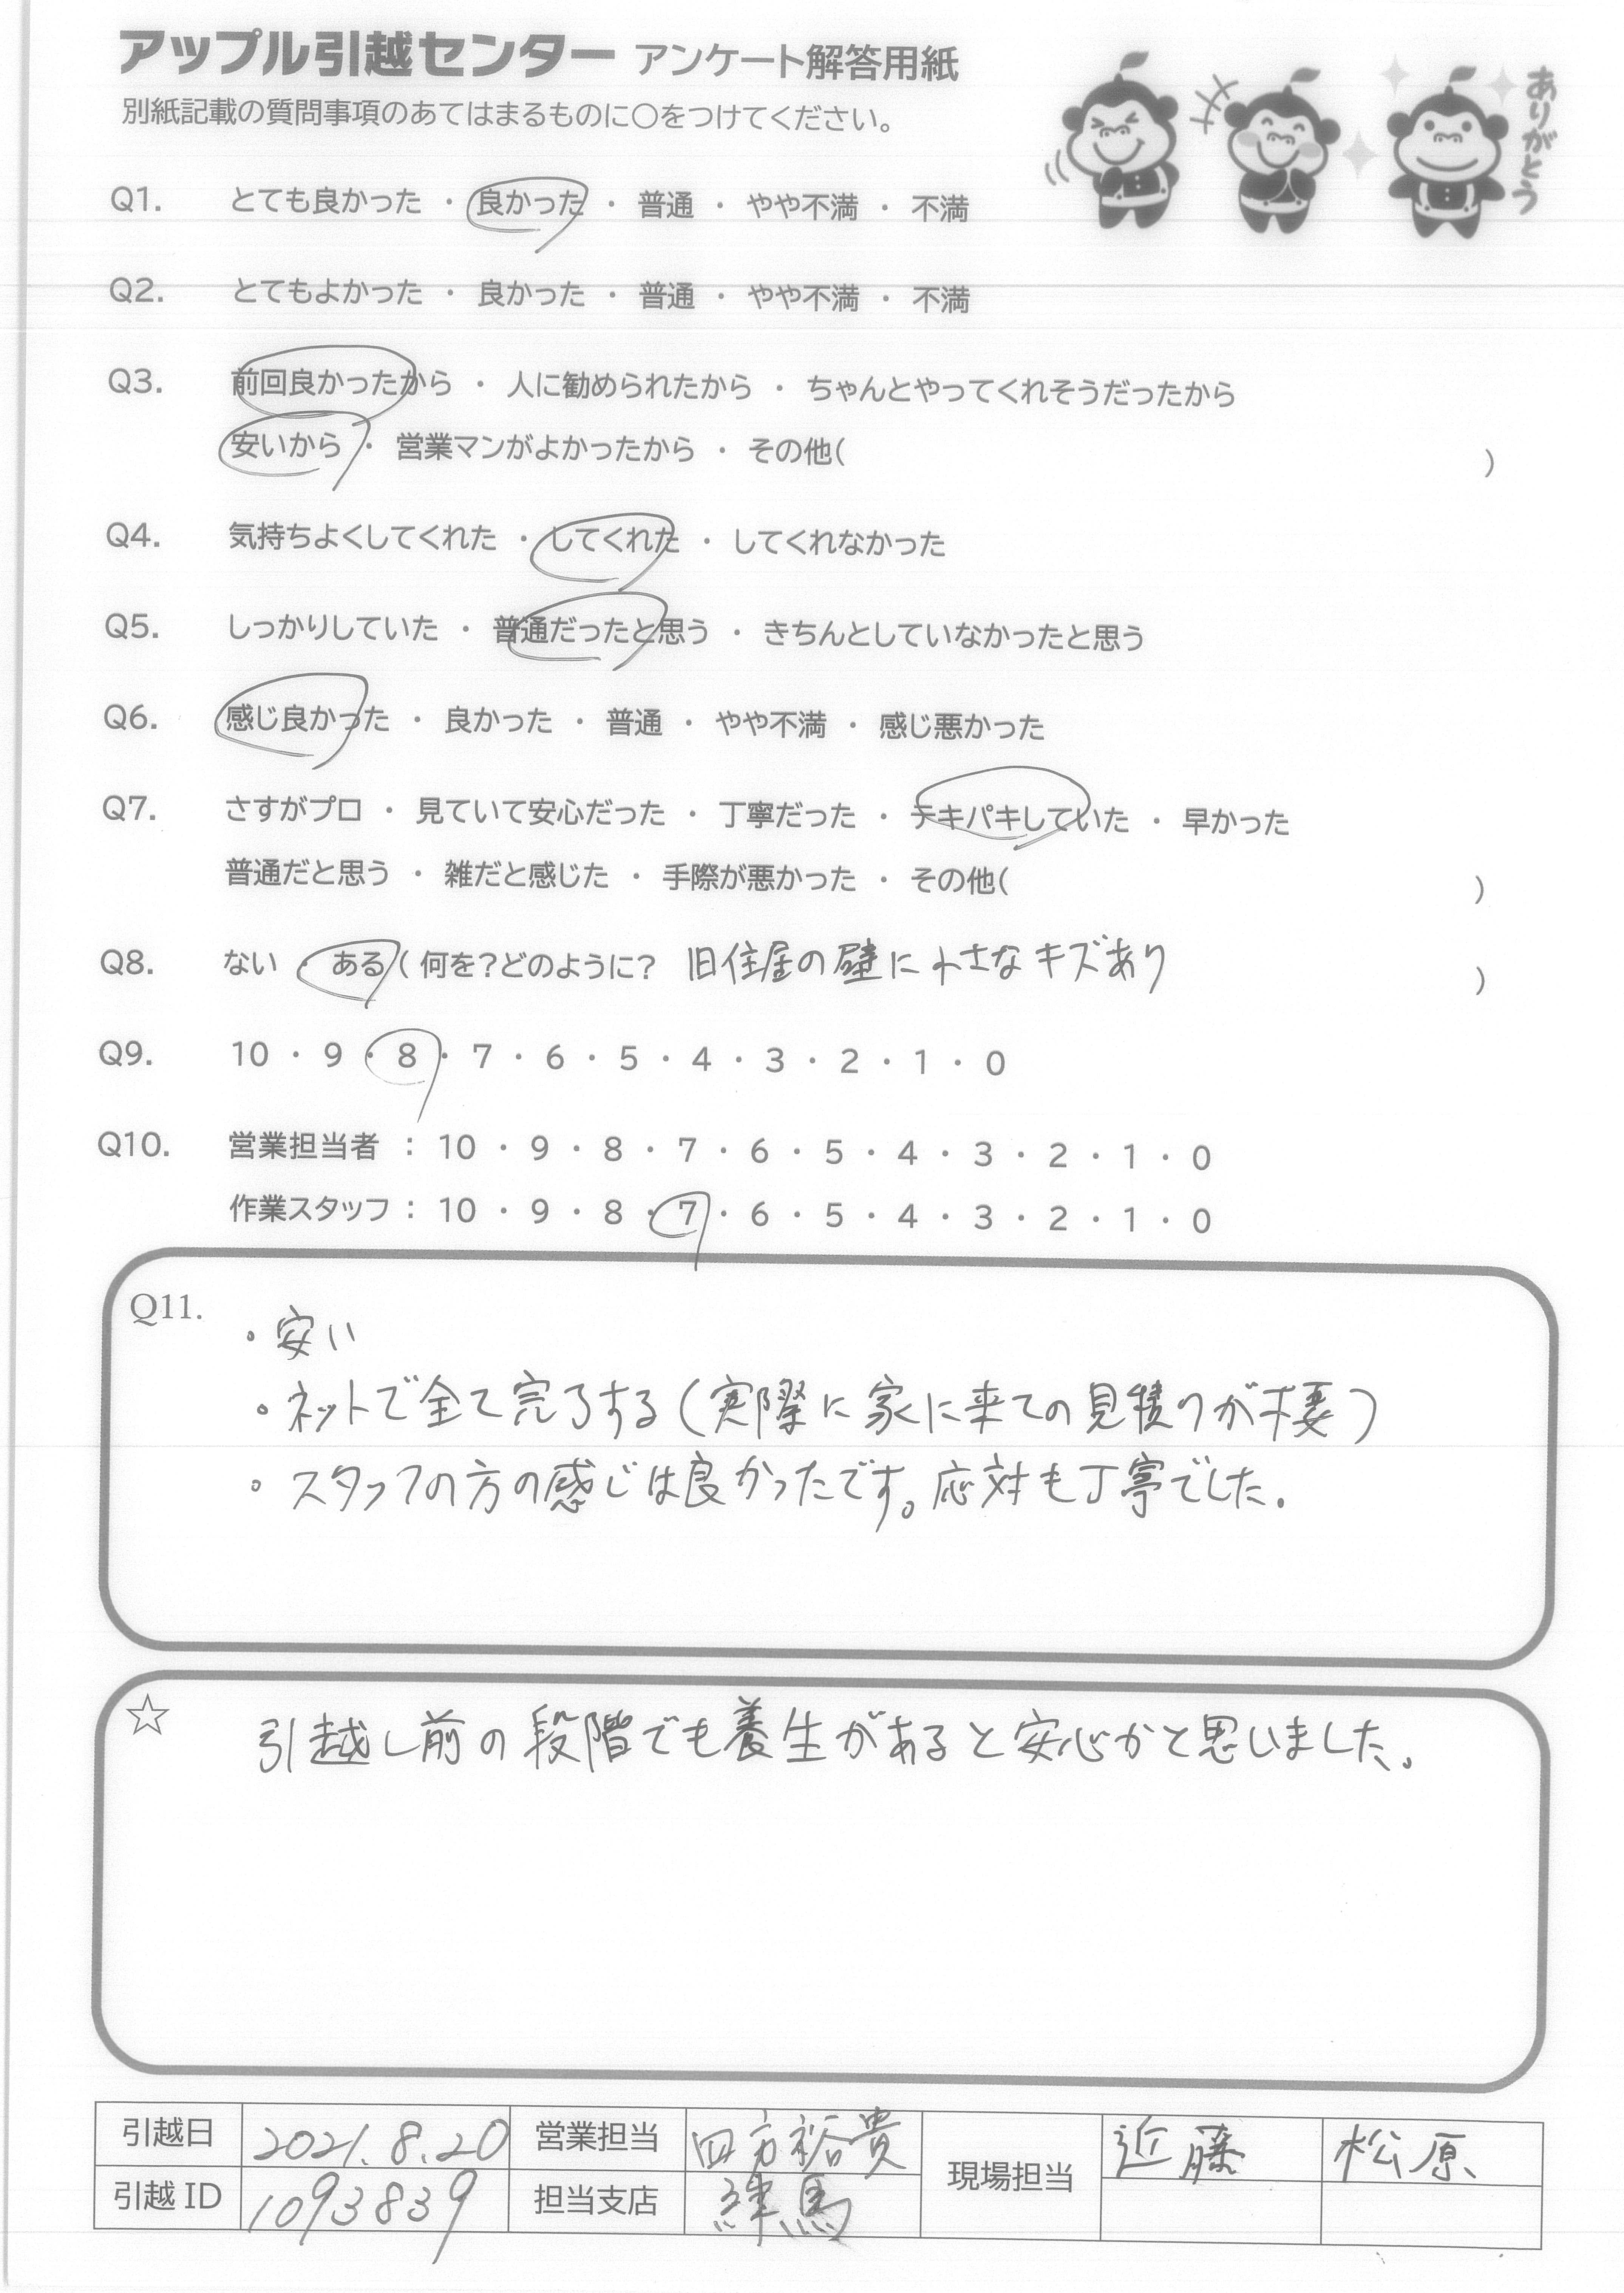 アップル引越センター アンケート解答用紙
別紙記載の質問事項のあてはまるものに○をつけてください。
ありがとう
Q1. とても良かった ・ 良かった ・ 普通 ・ やや不満 ・ 不満
Q2. とてもよかった ・ 良かった ・ 普通 ・ やや不満 ・ 不満
Q3. 前回良かったから ・ 人に勧められたから ・ ちゃんとやってくれそうだったから
安いから ・ 営業マンがよかったから ・ その他( )
Q4. 気持ちよくしてくれた ・ してくれた ・ してくれなかった
Q5. しっかりしていた ・ 普通だったと思う ・ きちんとしていなかったと思う
Q6. 感じ良かった ・ 良かった ・ 普通 ・ やや不満 ・ 感じ悪かった
Q7. さすがプロ ・ 見ていて安心だった ・ 丁寧だった ・ テキパキしていた ・ 早かった
普通だと思う ・ 雑だと感じた ・ 手際が悪かった ・ その他( )
Q8. ない ・ ある ( 何を?どのように? 旧住居の壁に小さなキズあり )
Q9. 10 ・ 9 ・ 8 ・ 7 ・ 6 ・ 5 ・ 4 ・ 3 ・ 2 ・ 1 ・ 0
Q10. 営業担当者 : 10 ・ 9 ・ 8 ・ 7 ・ 6 ・ 5 ・ 4 ・ 3 ・ 2 ・ 1 ・ 0
作業スタッフ : 10 ・ 9 ・ 8 ・ 7 ・ 6 ・ 5 ・ 4 ・ 3 ・ 2 ・ 1 ・ 0
Q11.
・安い
・ネットで全て完了する(実際に家に来ての見積りが不要)
・スタッフの方の感じは良かったです。応対も丁寧でした.
☆ 引越し前の段階でも養生があると安心かと思いました。
引越日 2021.8.20 営業担当 四方裕貴 現場担当 近藤 松原
引越 ID 1093839 担当支店 練馬